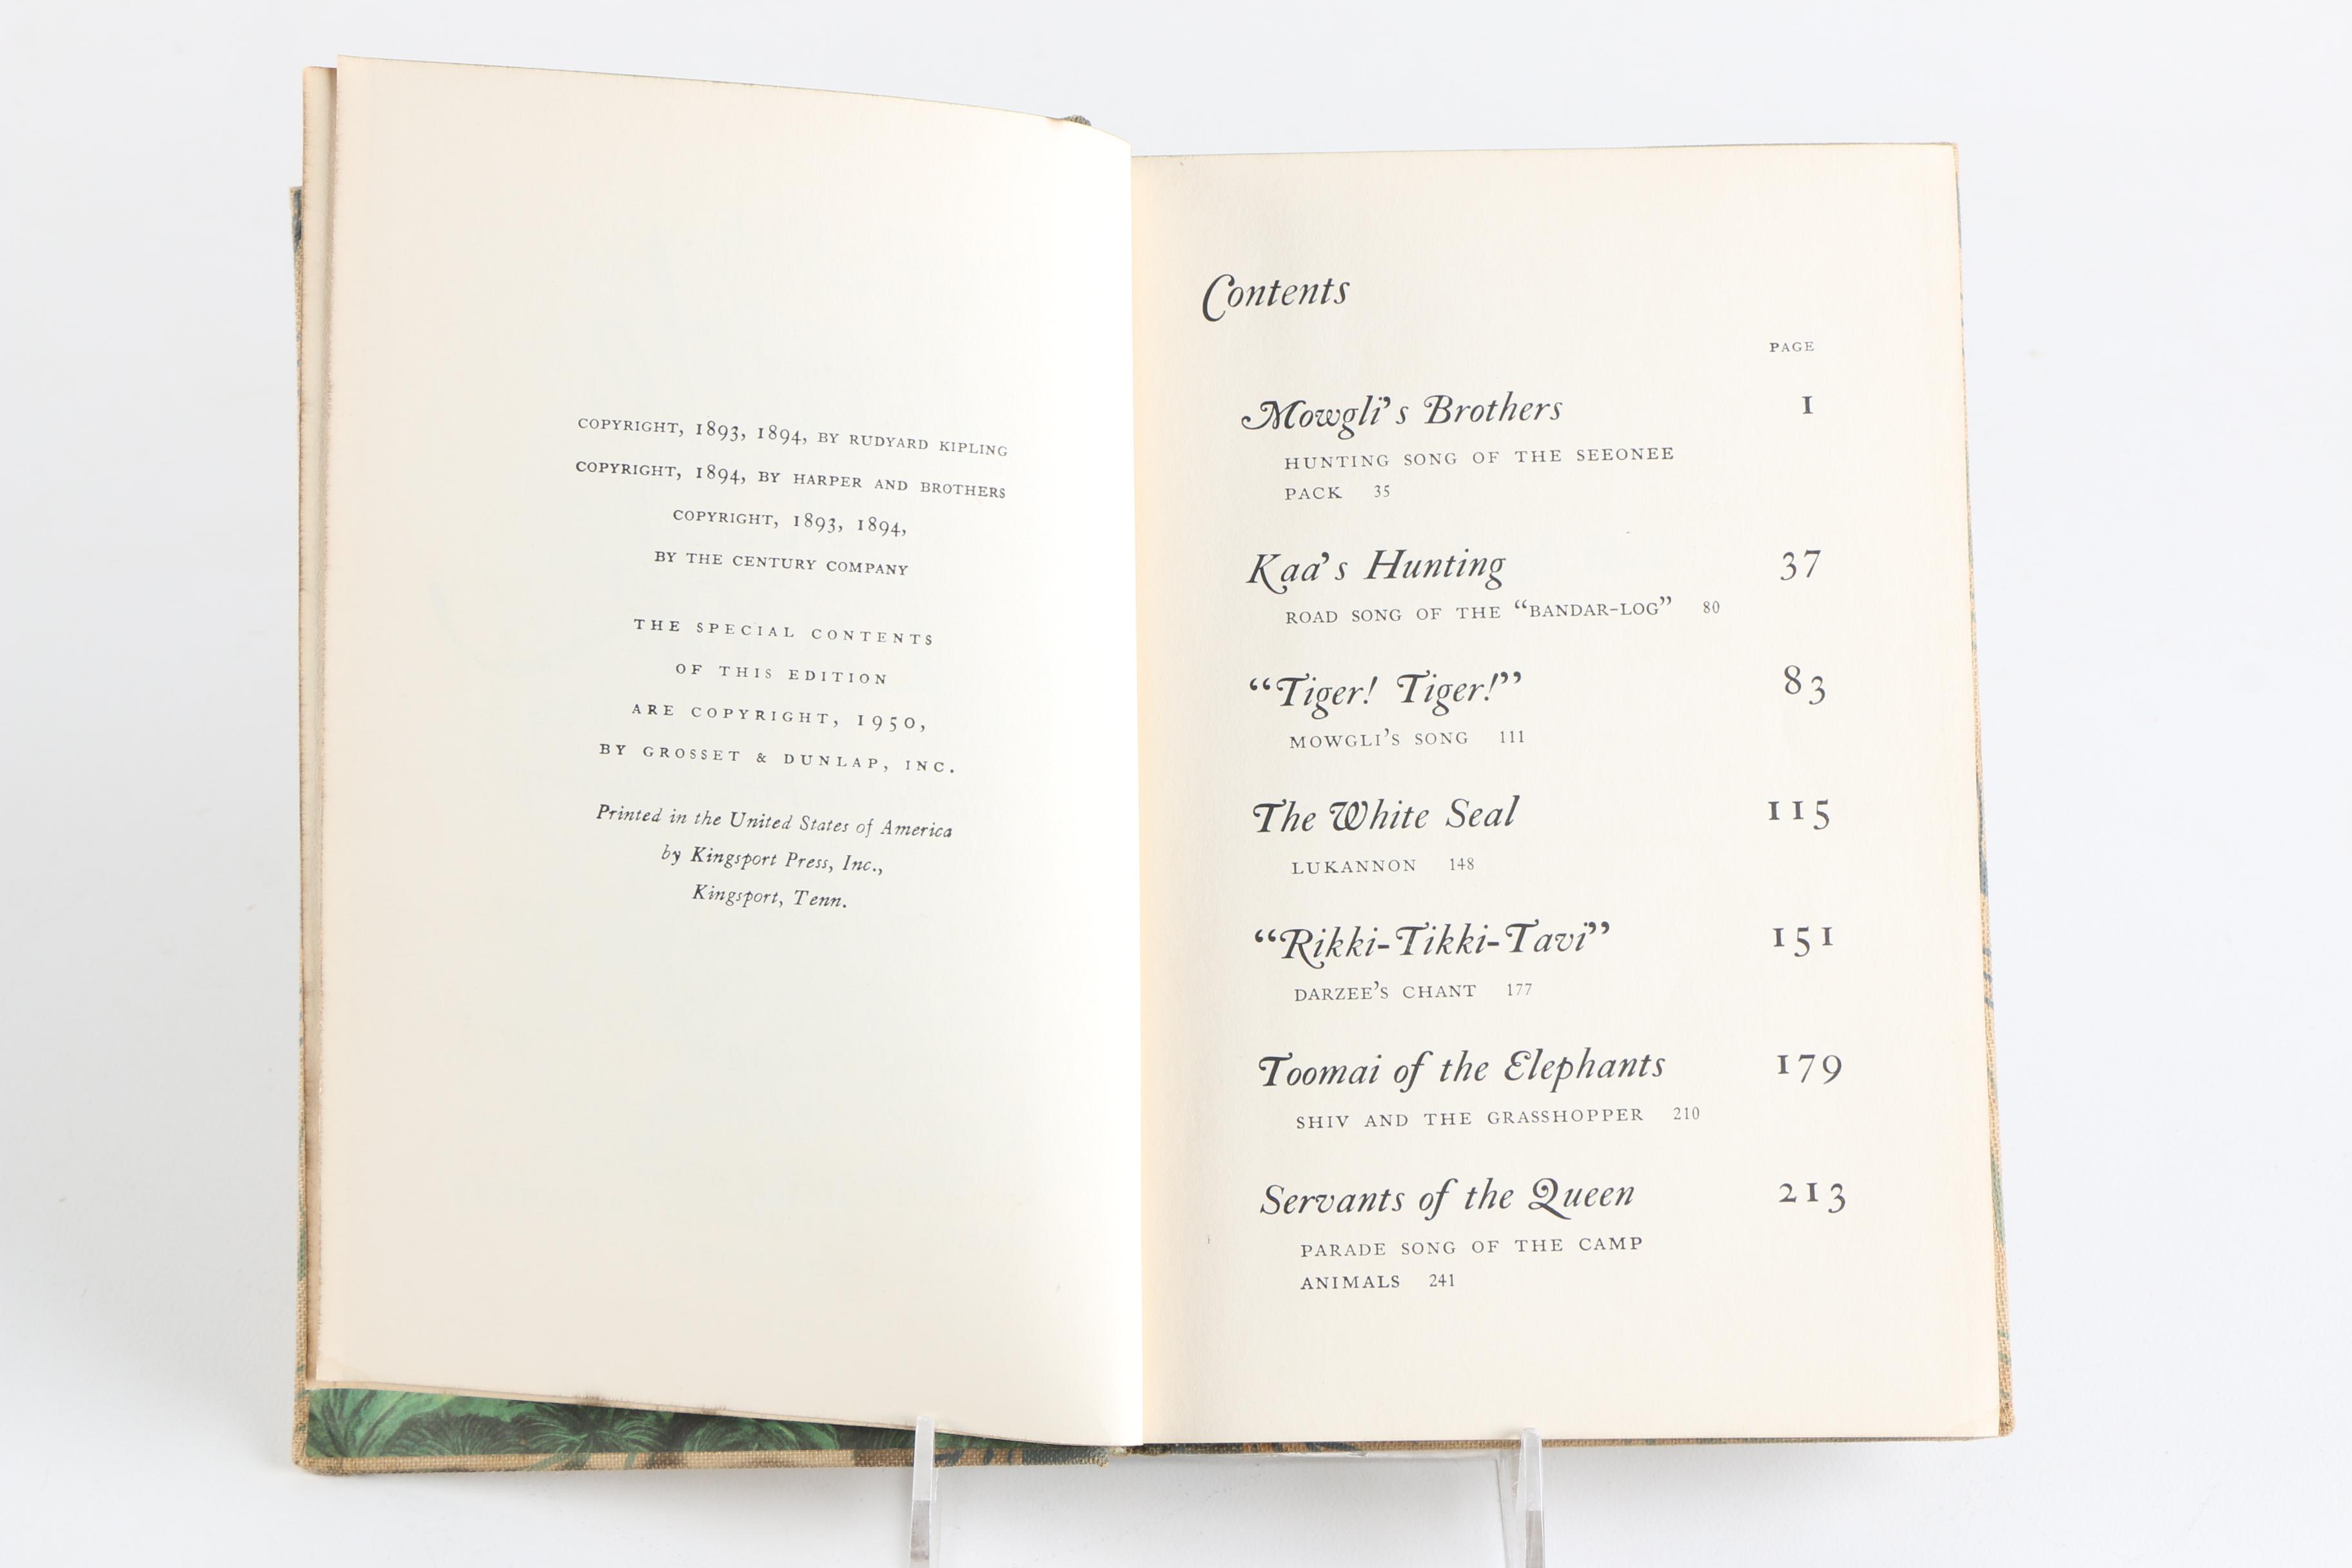 COPYRIGHT, 1893, 1894, BY RUDYARD KIPLING
COPYRIGHT, 1894, BY HARPER AND BROTHERS
COPYRIGHT, 1893, 1894,
BY THE CENTURY COMPANY
THE SPECIAL CONTENTS
OF THIS EDITION
ARE COPYRIGHT, 1950,
BY GROSSET & DUNLAP, INC.
Printed in the United States of America
by Kingsport Press, Inc.,
Kingsport, Tenn.
Contents
PAGE
Mowgli's Brothers 1
HUNTING SONG OF THE SEEONEE
PACK 35
Kaa's Hunting 37
ROAD SONG OF THE “BANDAR-LOG” 80
“Tiger! Tiger!” 83
MOWGLI'S SONG 111
The White Seal 115
LUKANNON 148
“Rikki-Tikki-Tavi” 151
DARZEE'S CHANT 177
Toomai of the Elephants 179
SHIV AND THE GRASSHOPPER 210
Servants of the Queen 213
PARADE SONG OF THE CAMP
ANIMALS 241